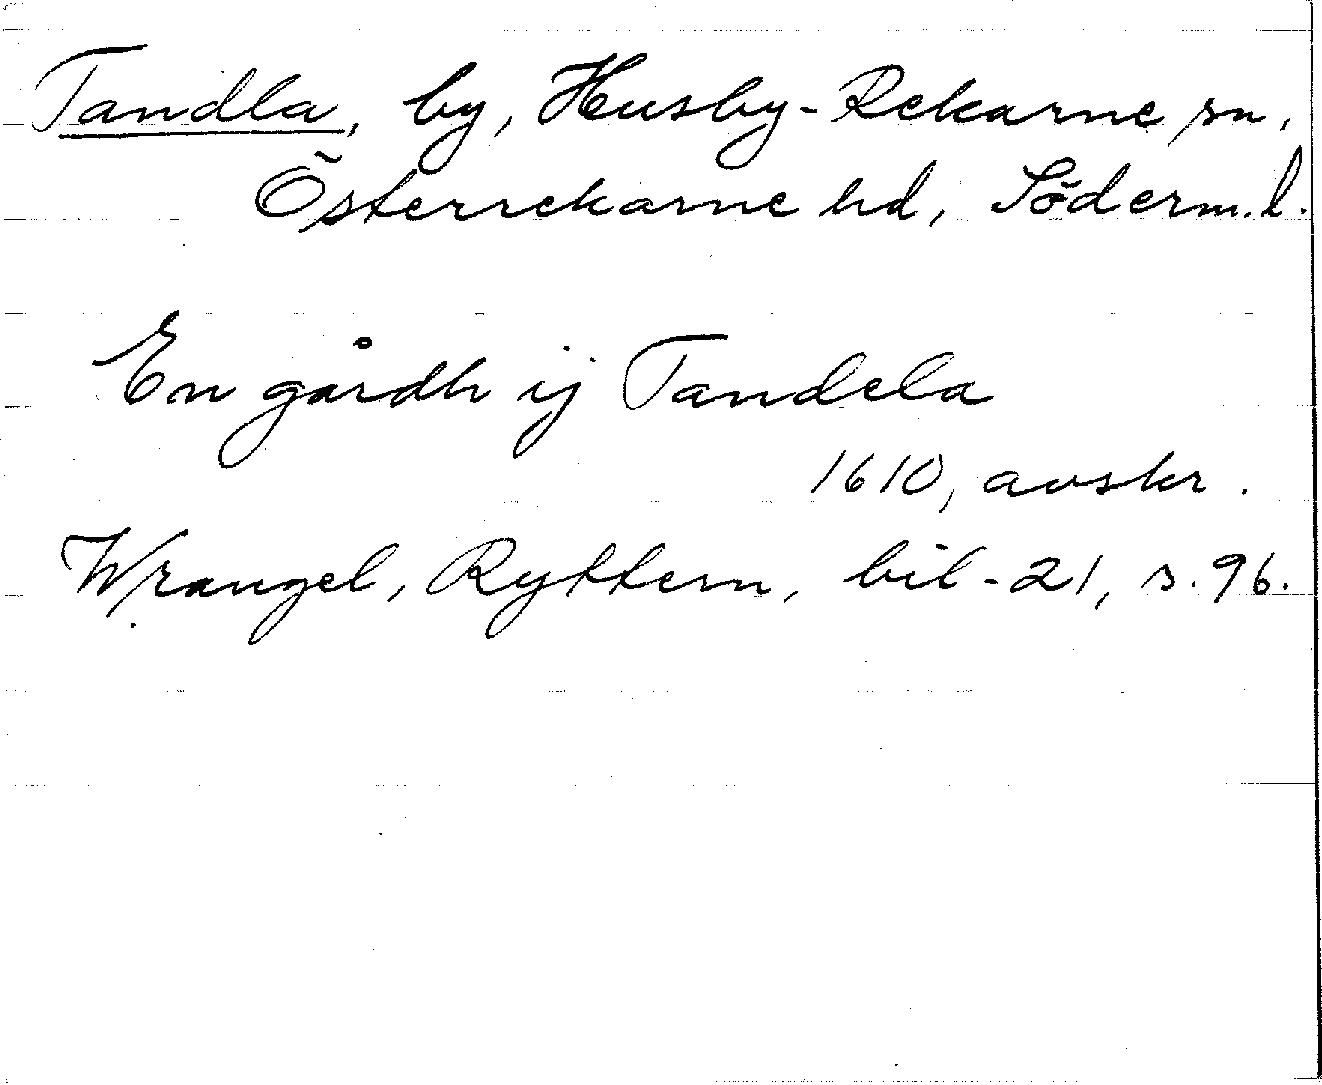 Tandla, by, Husby-Rekarne sn,
Österrekarne hd, Söderm.l.
En gårdh ij Tandela
1610, avskr.
Wrangel, Ryttern, bil. 21, s. 96.